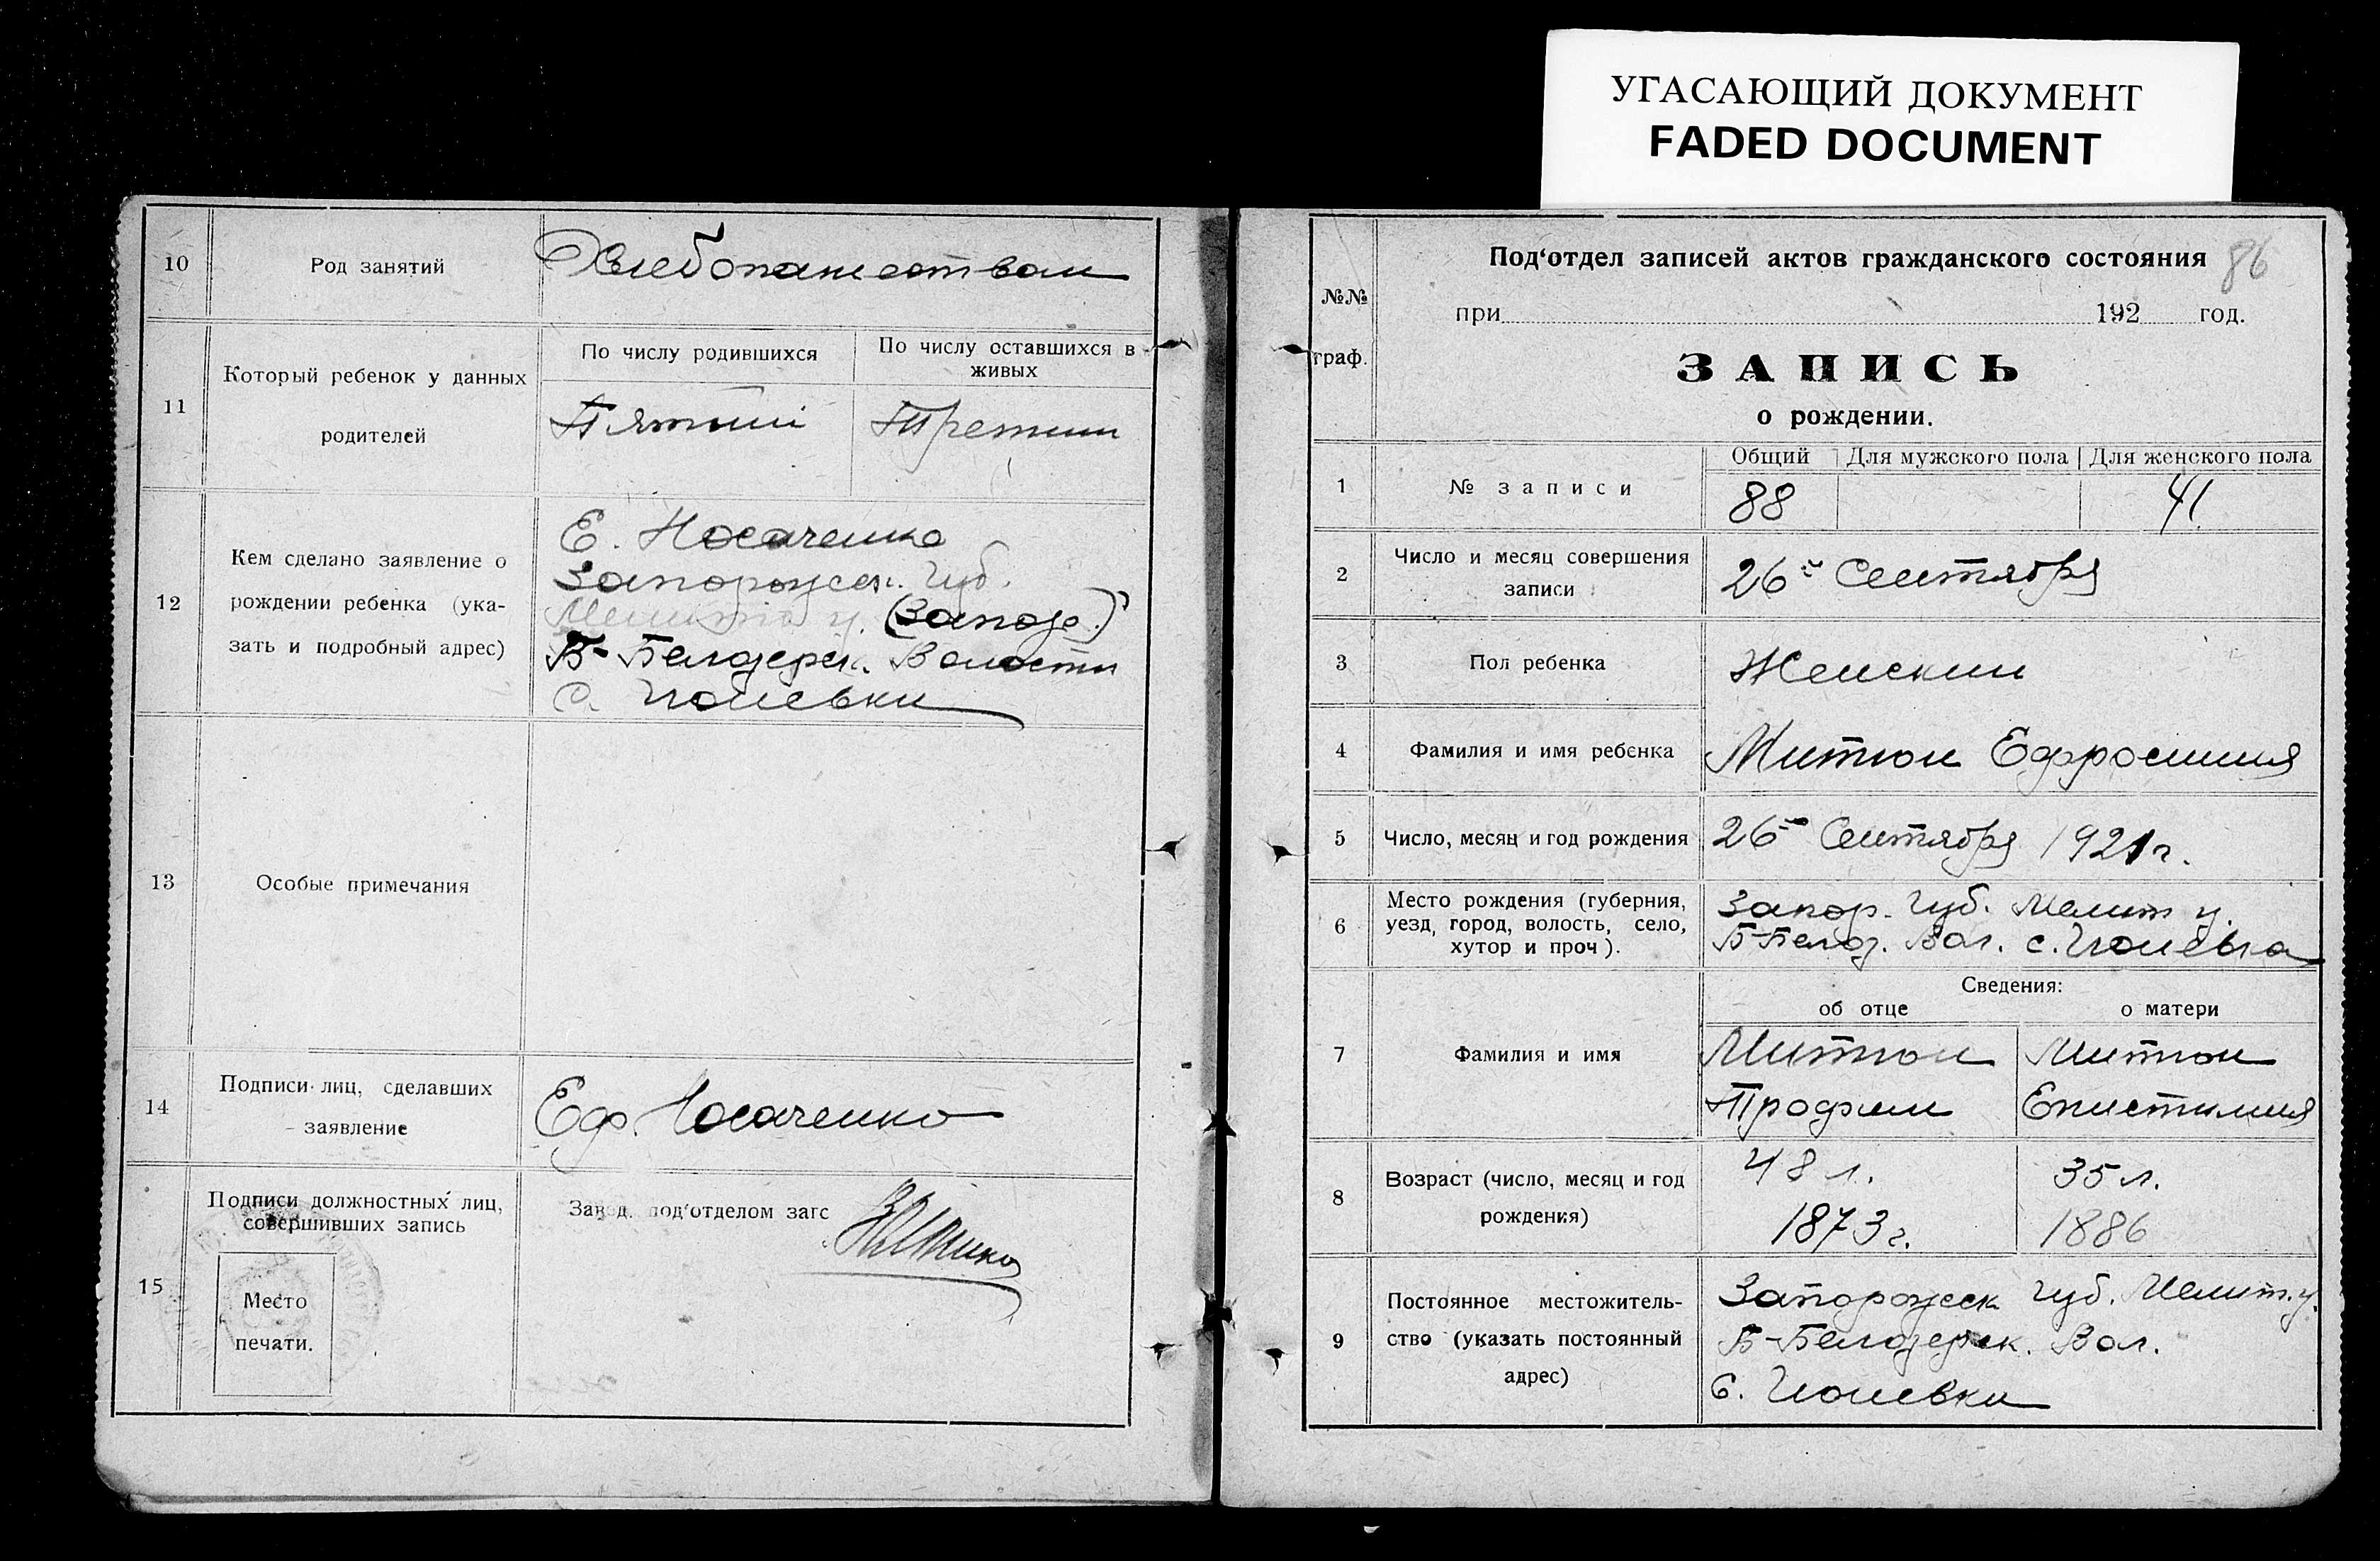 УГАСАЮЩИЙ ДОКУМЕНТ
FADED DOCUMENT
10
Род занятий
Хлебопашеством
11
Который ребенок у данных
родителей
По числу родившихся
По числу оставшихся в
живых
Пятый
Третий
12
Кем сделано заявление о
рождении ребенка (ука-
зать и подробный адрес)
Е. Носаченко
Запорожск. Губ.
у.
Б-Белозерск. Волости
с.
13
Особые примечания
14
Подписи лиц, сделавших
заявление
Еф. Носаченко
15
Подписи должностных лиц,
совершивших запись
Завод. под‘отделом загс
Место
печати.
№№
граф.
Под‘отдел записей актов гражданского состояния
86
при 192 год.
ЗАПИСЬ
о рождении.
1
№ записи
Общий
Для мужского пола
Для женского пола
88
41
2
Число и месяц совершения
записи
26го Сентября
3
Пол ребенка
Женский
4
Фамилия и имя ребенка
Митюн Ефросиния
5
Число, месяц и год рождения
26го Сентября 1921 г.
6
Место рождения (губерния,
уезд, город, волость, село,
хутор и проч).
Запор. Губ. Мелит у.
Б-Белоз. Вол. с.
Сведения:
об отце
о матери
7
Фамилия и имя
Митюн
Трофим
Митюн
Епистимия
8
Возраст (число, месяц и год
рождения)
48 л.
1873 г.
35 л.
1886
9
Постоянное местожитель-
ство (указать постоянный
адрес)
Запорожск Губ. Мелит. у.
Б-Белозерск. Вол.
с.